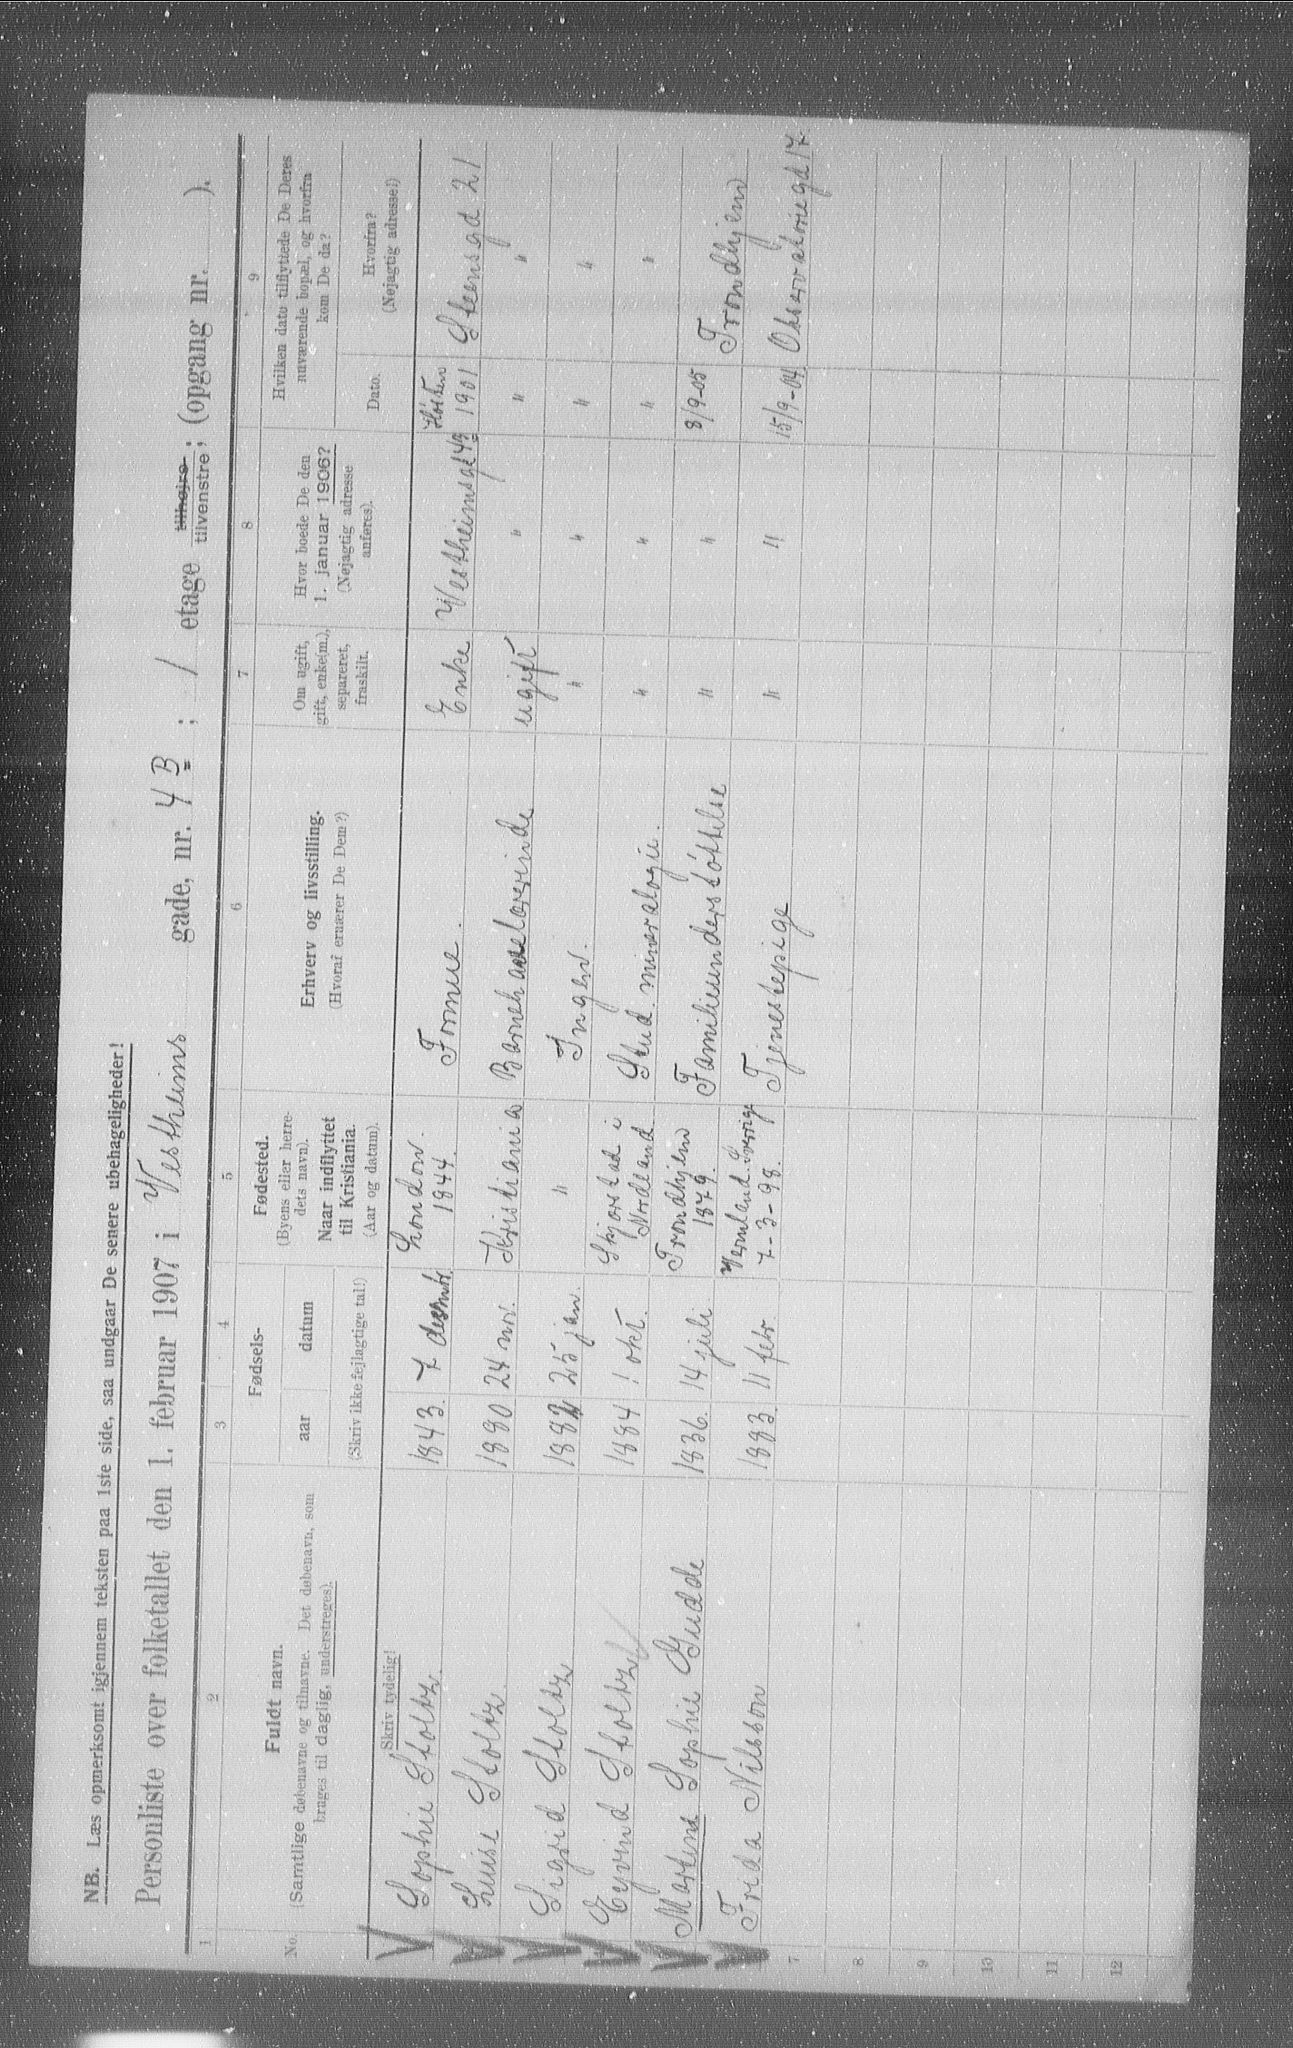 NB. Læs opmerksomt igjennem teksten paa 1ste side, saa undgaar De senere ubehageligheder!
Personliste over folketallet den 1. februar 1907 i Vestheims gade, nr. 4 B ; / etage tilhøjre tilvenstre ; (opgang nr. ).
1 2 3 4 5 6 7 8 9
No.
Fuldt navn.
(Samtlige døbenavne og tilnavne. Det døbenavn, som
bruges til daglig, understreges).
Skriv tydelig!
Fødsels-
aar datum
(Skriv ikke fejlagtige tal!)
Fødested.
(Byens eller herre-
dets navn).
Naar indflyttet
til Kristiania.
(Aar og datum).
Erhverv og livsstilling.
(Hvoraf ernærer De Dem?)
Om ugift,
gift, enke(m.),
separeret,
fraskilt.
Hvor boede De den
1. januar 1906?
(Nøjagtig adresse
anføres).
Hvilken dato tilflyttede De Deres
nuværende bopæl, og hvorfra
kom De da?
Dato.
Hvorfra?
(Nøjagtig adresse!)
Sophie Stoltz. 1843. 7 desembr. London. 1844. Formue. Enke Vestheimsgd 4B Høsten 1901 Steensgd 21
Luise Stoltz. 1880 24 nov. Kristiania ugift " " "
Sigrid Stoltz 25 jan. " Ingen. " " " "
Eyvind Stoltz 1884 1 okt. Skjerstad i Nordland Stud. mineralogie. " " " "
Martine Sophie Gudde 1836. 14 juli Trondhjem Familieunderstøttelse " " 8/9-05 Trondhjem
Frida Nilsson 1883. 11 febr. Vermland. Sverige 7-3-98. Tjenestepige " " 15/9-04 Observatoriegd 17.
7
8
9
10
11
12